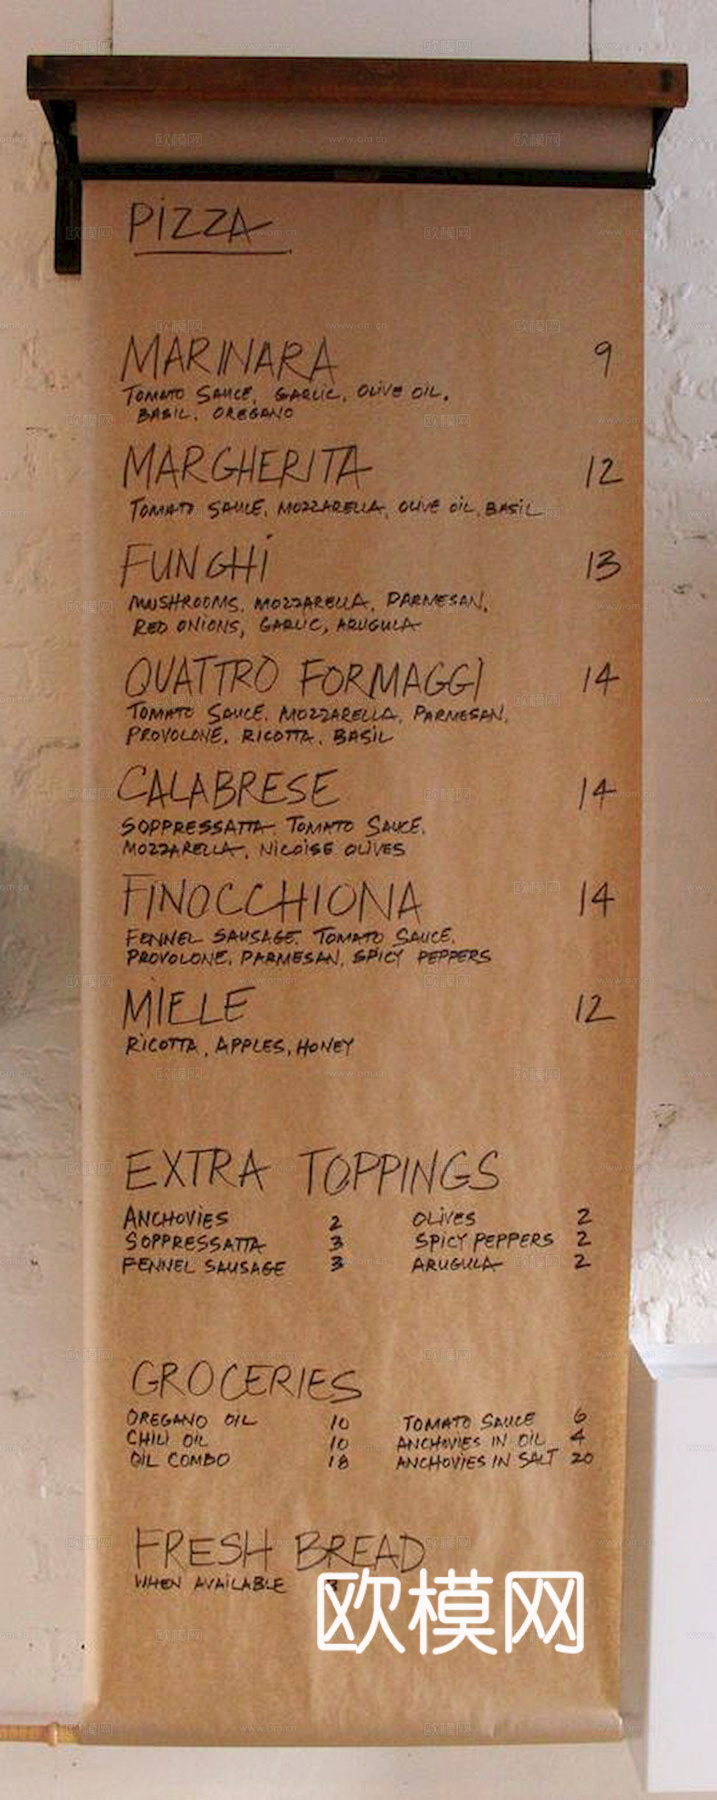 PIZZA
MARINARA 9
TOMATO SAUCE, GARLIC, OLIVE OIL,
BASIL, OREGANO
MARGHERITA 12
TOMATO SAUCE, MOZZARELLA, OLIVE OIL, BASIL
FUNGHI 13
MUSHROOMS, MOZZARELLA, PARMESAN,
RED ONIONS, GARLIC, ARUGULA
QUATTRO FORMAGGI 14
TOMATO SAUCE, MOZZARELLA, PARMESAN,
PROVOLONE, RICOTTA, BASIL
CALABRESE 14
SOPPRESSATTA, TOMATO SAUCE,
MOZZARELLA, NICOISE OLIVES
FINOCCHIONA 14
FENNEL SAUSAGE, TOMATO SAUCE,
PROVOLONE, PARMESAN, SPICY PEPPERS
MIELE 12
RICOTTA, APPLES, HONEY
EXTRA TOPPINGS
ANCHOVIES 2 OLIVES 2
SOPPRESSATTA 3 SPICY PEPPERS 2
FENNEL SAUSAGE 3 ARUGULA 2
GROCERIES
OREGANO OIL 10 TOMATO SAUCE 6
CHILI OIL 10 ANCHOVIES IN OIL 4
OIL COMBO 18 ANCHOVIES IN SALT 20
FRESH BREAD
WHEN AVAILABLE
欧模网